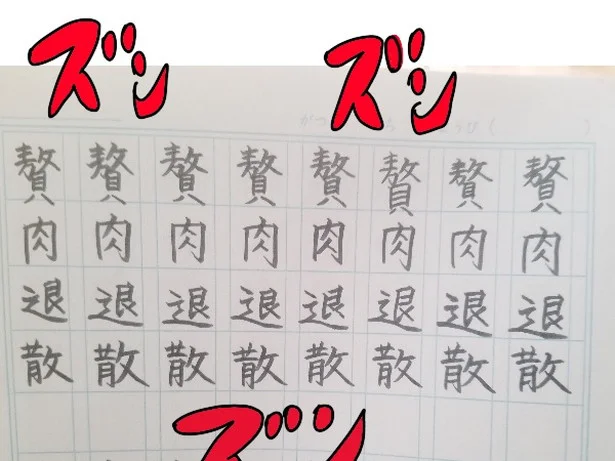 ズン
ズン
贅肉退散
贅肉退散
贅肉退散
贅肉退散
贅肉退散
贅肉退散
贅肉退散
贅肉退散
ズン